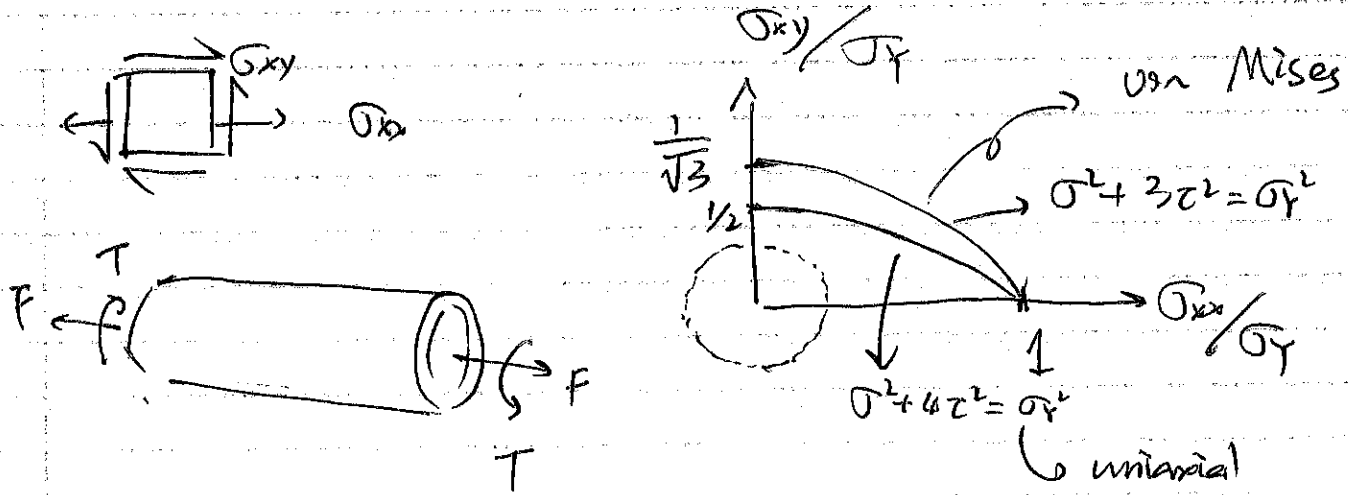 σxy
σxx
T
F
F
T
σxy/σY
von Mises
1/√3
σ²+3τ²=σY²
1/2
σxx/σY
1
σ²+4τ²=σY²
uniaxial